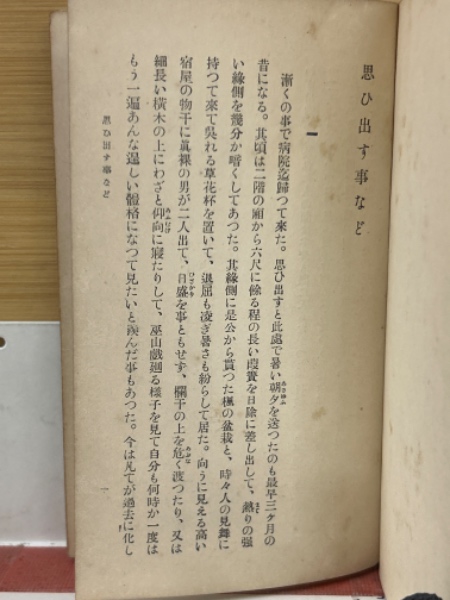 思ひ出す事など
一
漸くの事で病院迄歸つて來た。思ひ出すと此處で暑い朝夕を送つたのも最早三ケ月の
昔になる。其頃は二階の廂から六尺に餘る程の長い葭簀を日除に差し出して、熱りの强
い緣側を幾分か暗くしてあつた。其緣側に是公から貰つた楓の盆栽と、時々人の見舞に
持つて來て吳れる草花杯を置いて、退屈も凌ぎ暑さも紛らして居た。向うに見える高い
宿屋の物干に眞裸の男が二人出て、日盛を事ともせず、欄干の上を危く渡つたり、又は
細長い橫木の上にわざと仰向に寢たりして、巫山戲廻る樣子を見て自分も何時か一度は
もう一遍あんな逞しい體格になつて見たいと羨んだ事もあつた。今は凡てが過去に化し
思ひ出す事など
一